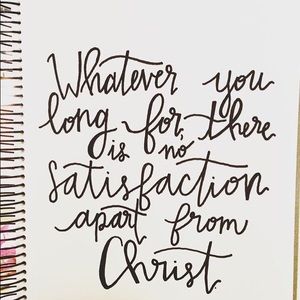 Whatever you
long for, there
is no
satisfaction
apart from
Christ